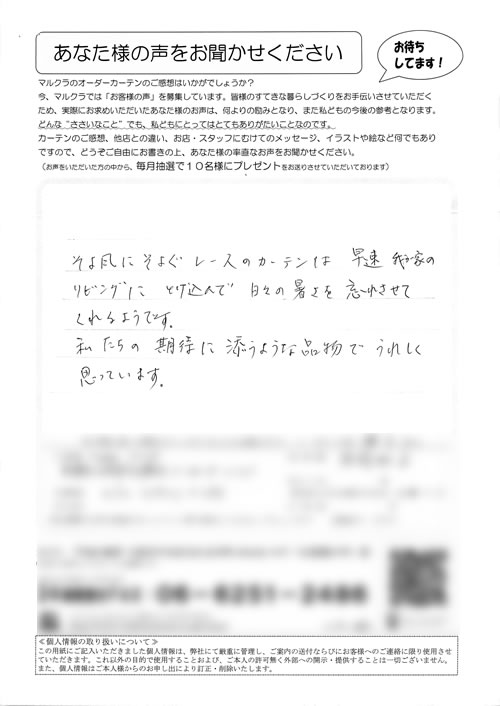 あなた様の声をお聞かせください
お待ち
してます！
マルクラのオーダーカーテンのご感想はいかがでしょうか？
今、マルクラでは「お客様の声」を募集しています。皆様のすてきな暮らしづくりをお手伝いさせていただく
ため、実際にお求めいただいたあなた様のお声は、何よりの励みとなり、また私どもの今後の参考となります。
どんな“ささいなこと”でも、私どもにとってはとてもありがたいことなのです。
カーテンのご感想、他店との違い、お店・スタッフにむけてのメッセージ、イラストや絵など何でもあり
ですので、どうぞご自由にお書きの上、あなた様の率直なお声をお聞かせください。
（お声をいただいた方の中から、毎月抽選で１０名様にプレゼントをお送りさせていただいております）
そよ風にそよぐ レースのカーテンは 早速 我が家の
リビングに とけ込んで 日々の暑さを 忘れさせて
くれるようです。
私たちの 期待に 添うような品物で うれしく
思っています。
06-6251-2486
≪個人情報の取り扱いについて≫
この用紙にご記入いただきました個人情報は、弊社にて厳重に管理し、ご案内の送付ならびにお客様へのご連絡に限り使用させ
ていただきます。これ以外の目的で使用することおよび、ご本人の許可無く外部への開示・提供することは一切ございません。
また、個人情報はご本人様からのお申し出により訂正・削除いたします。